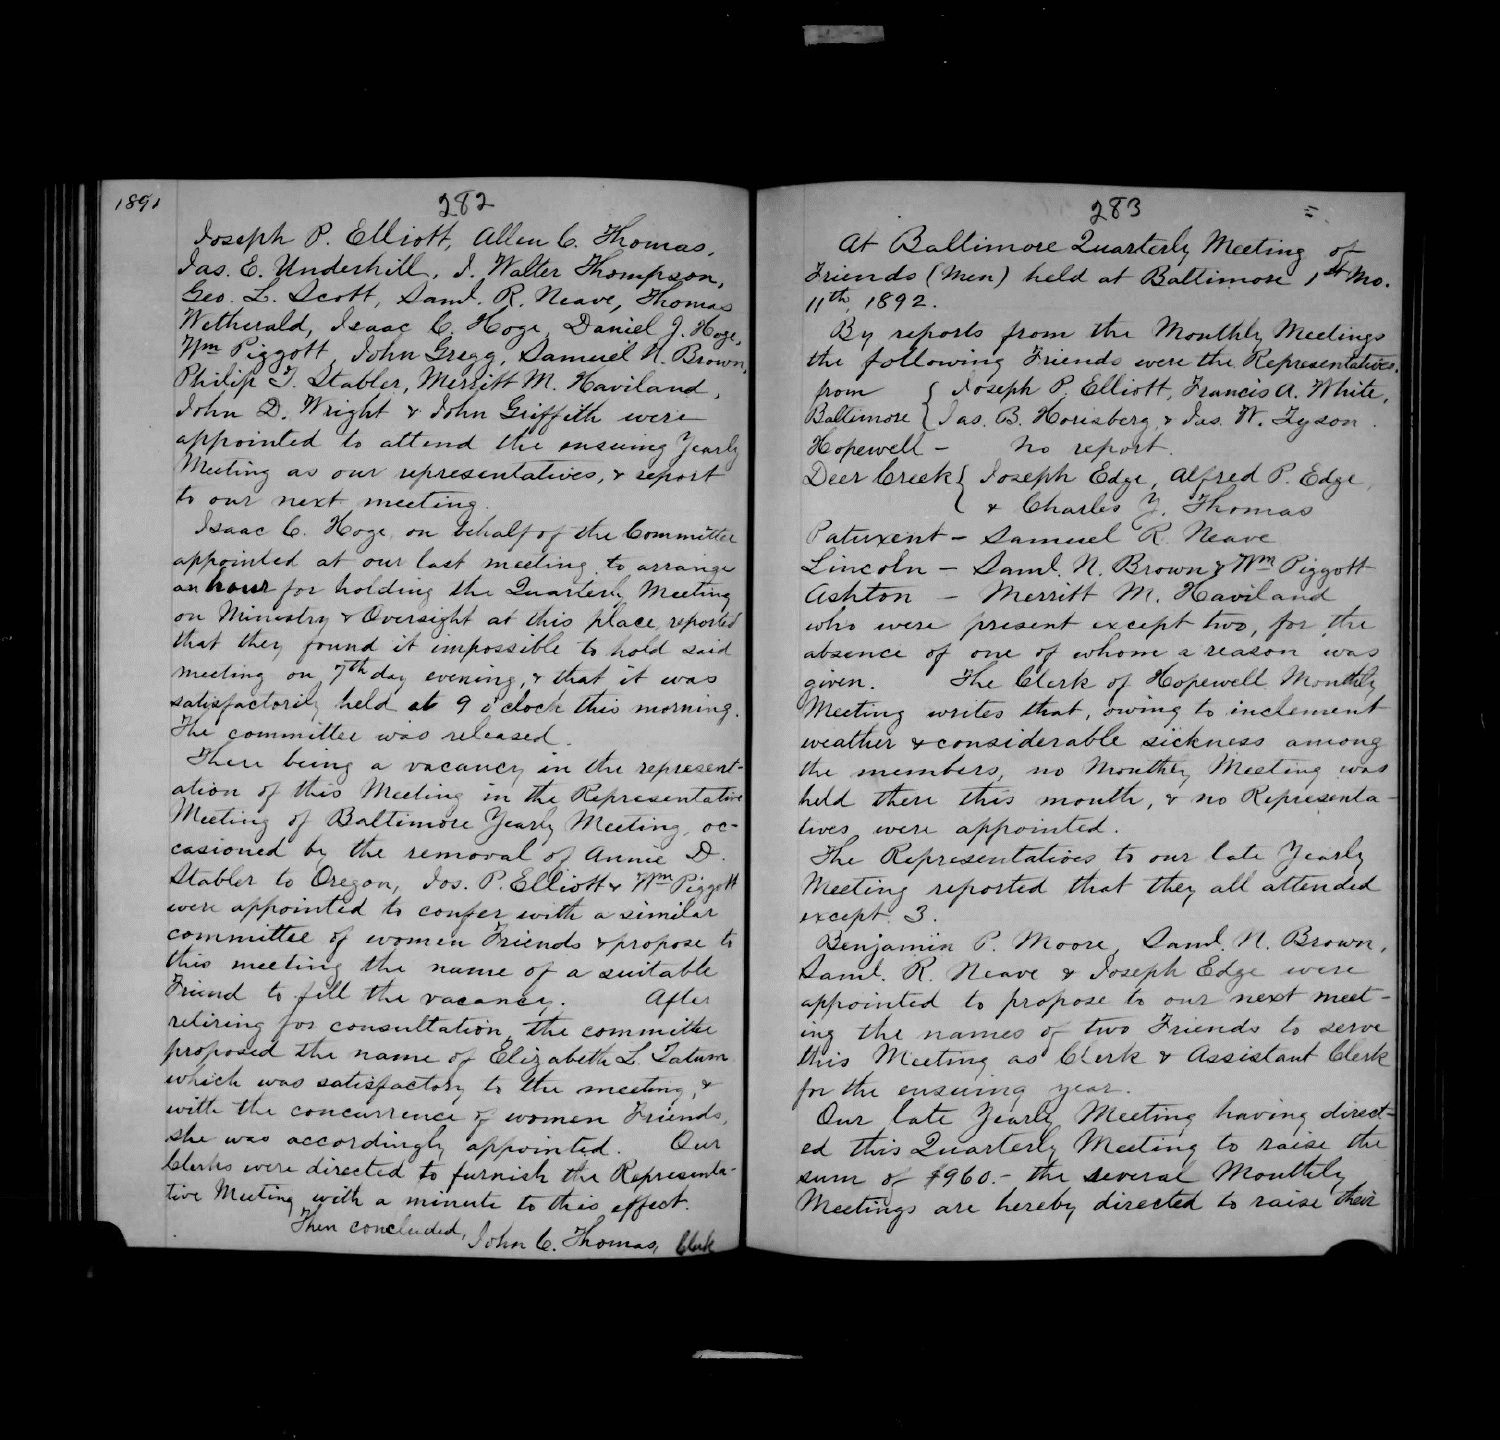 1891
282
Joseph P. Elliott, Allen C. Thomas,
Jas. E. Underhill, J. Walter Thompson,
Geo. L. Scott, Saml. R. Neave, Thomas
Wetherald, Isaac C. Hoge, Daniel J. Hoge,
Wm Piggott, John Gregg, Samuel N. Brown,
Philip T. Stabler, Merritt M. Haviland,
John D. Wright & John Griffith were
appointed to attend the ensuing Yearly
Meeting as our representatives, & report
to our next meeting.
Isaac C. Hoge, on behalf of the Committee
appointed at our last meeting to arrange
an hour for holding the Quarterly Meeting
on Ministry & Oversight at this place, reported
that they found it impossible to hold said
meeting on 7th day evening, & that it was
satisfactorily held at 9 o'clock this morning.
The committee was released.
There being a vacancy in the represent-
ation of this Meeting in the Representative
Meeting of Baltimore Yearly Meeting, oc-
casioned by the removal of Annie D.
Stabler to Oregon, Jos. P. Elliott & Wm Piggott
were appointed to confer with a similar
committee of women Friends & propose to
this meeting the name of a suitable
Friend to fill the vacancy. After
retiring for consultation, the committee
proposed the name of Elizabeth L. Tatum
which was satisfactory to the meeting, &
with the concurrence of women Friends,
she was accordingly appointed. Our
Clerks were directed to furnish the Representa-
tive Meeting with a minute to this effect.
Then concluded,
John C. Thomas, Clerk
283
At Baltimore Quarterly Meeting of
Friends (Men) held at Baltimore 1st Mo.
11th, 1892.
By reports from the Monthly Meetings
the following Friends were the Representatives.
from { Joseph P. Elliott, Francis A. White,
Baltimore { Jas. B. Horisberg, & Jas. W. Tyson.
Hopewell - No report.
Deer Creek { Joseph Edge, Alfred P. Edge,
{ & Charles Y. Thomas
Patuxent - Samuel R. Neave
Lincoln - Saml. N. Brown & Wm Piggott
Ashton - Merritt M. Haviland
who were present except two, for the
absence of one of whom a reason was
given. The Clerk of Hopewell Monthly
Meeting writes that, owing to inclement
weather & considerable sickness among
the members, no Monthly Meeting was
held there this month, & no Representa-
tives were appointed.
The Representatives to our late Yearly
Meeting reported that they all attended
except 3.
Benjamin P. Moore, Saml. N. Brown,
Saml. R. Neave & Joseph Edge were
appointed to propose to our next meet-
ing the names of two Friends to serve
this Meeting as Clerk & Assistant Clerk
for the ensuing year.
Our late Yearly Meeting having direct-
ed this Quarterly Meeting to raise the
sum of $960.- the several Monthly
Meetings are hereby directed to raise their